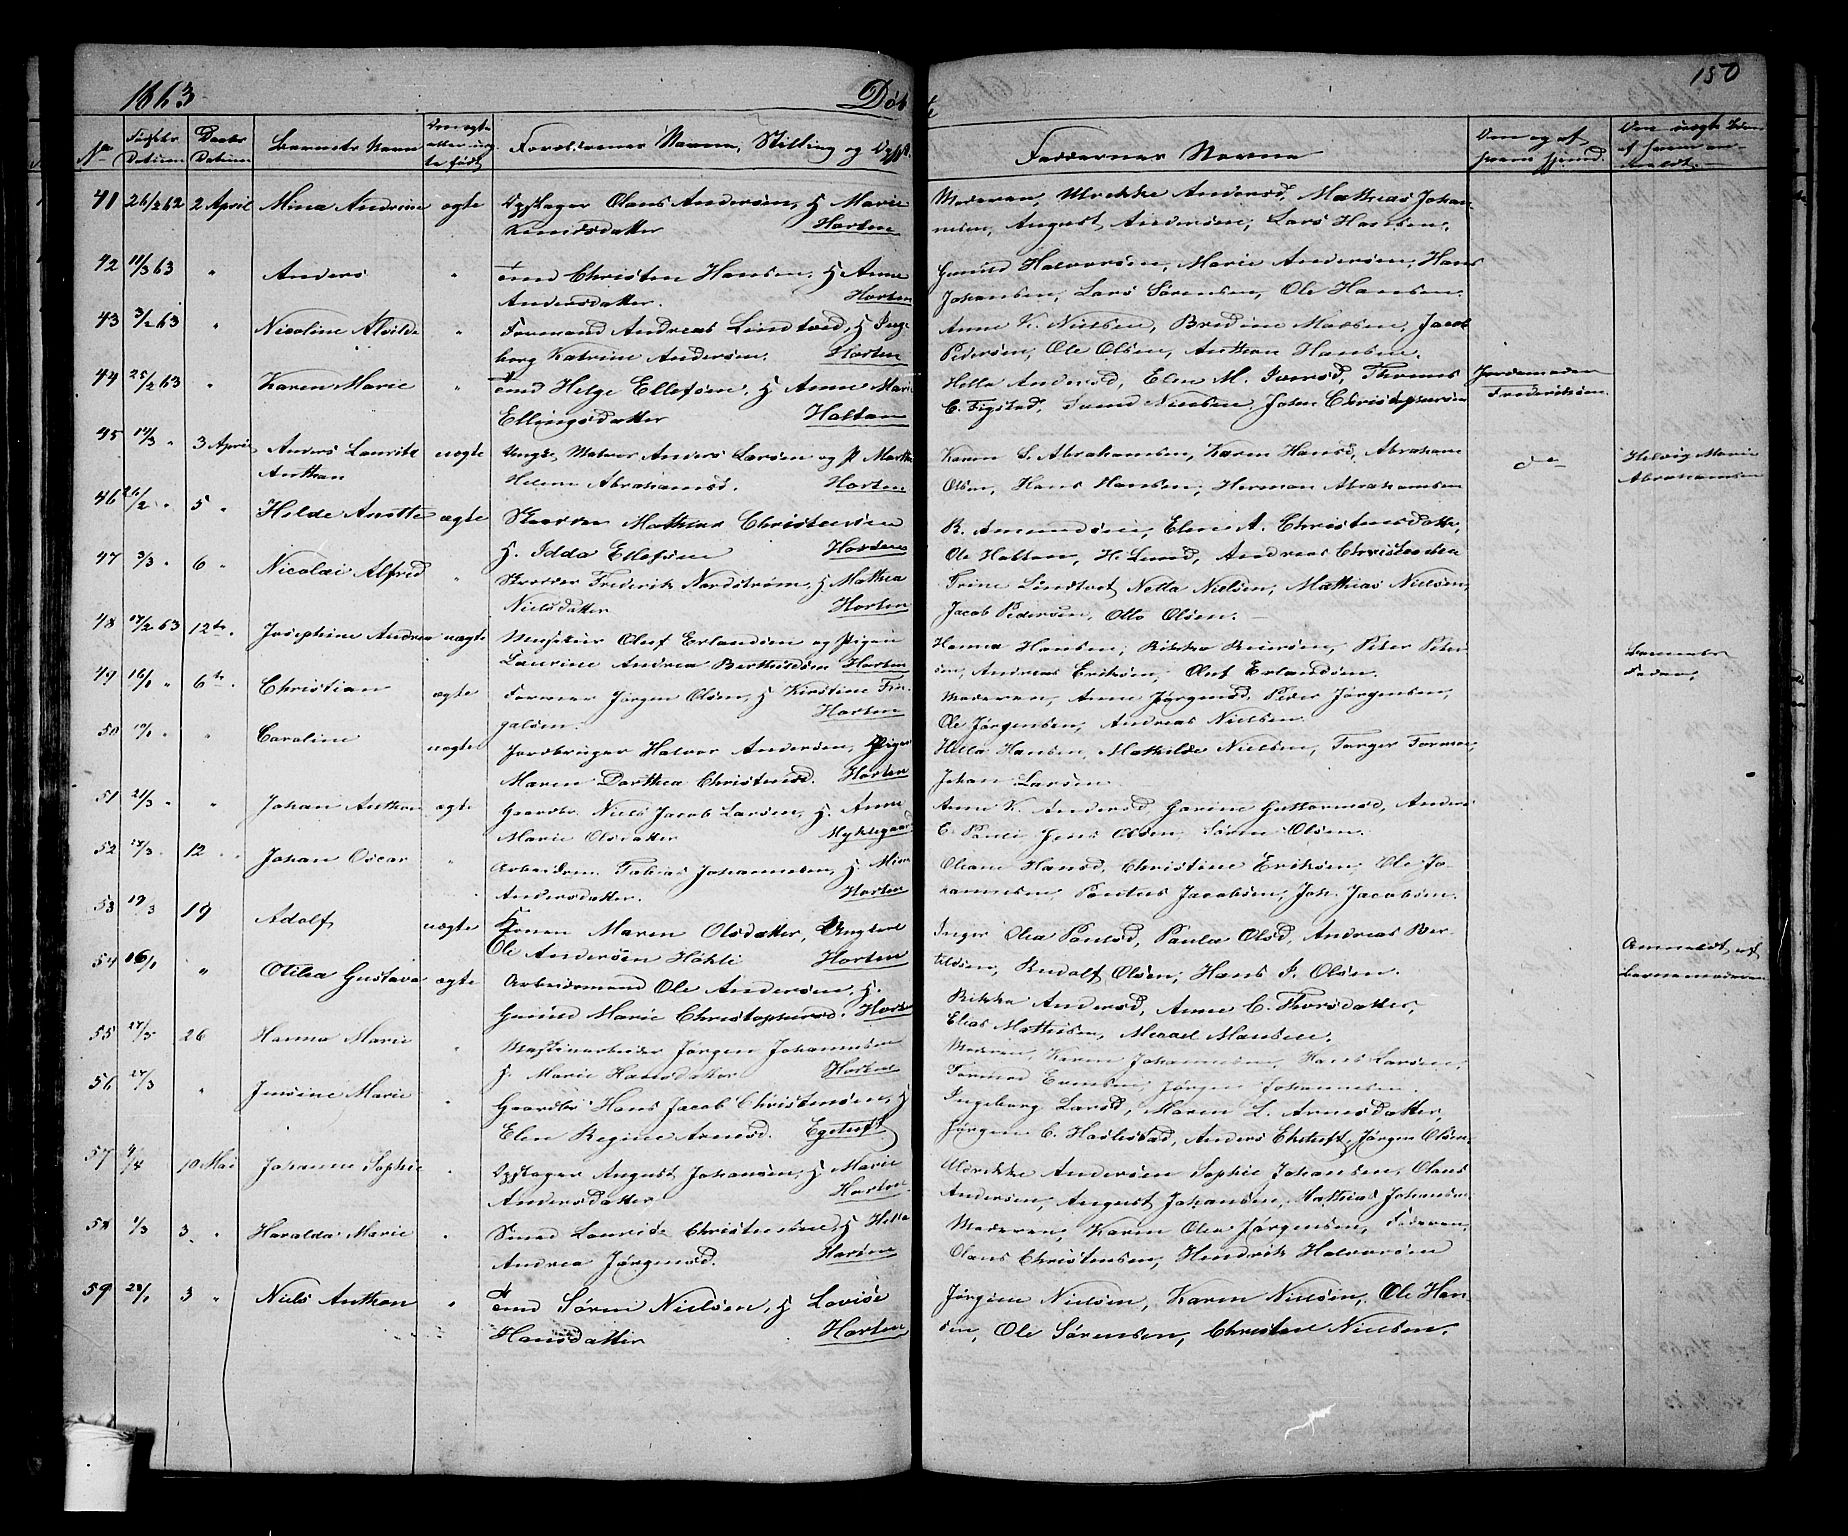 1863 Døbte 150
No Fødsels Datum Daabs Datum Barnets Navn Om ægte eller uægte født Forældrenes Navne, Stilling og
Faddernes Navne
41 26/2 62 2 April Mina Andrine ægte Opstager Olaus Andersøn, H Marie
Horten
Moderen, Ulrekke Andersd, Mathias Johan-
nisen, August Andersøn, Lars Hansen.
42 11/3 63 " Anders " Christen Hansen, H Anne
Andersdatter. Horten
Gunild Halvorsøn, Marie Andersøn, Hans
Johansen, Lars Sørensen, Ole Hansen.
43 3/2 63 " Nicoline Alvilde " Formand Andreas Lindtvid, H Inge-
borg Katrine Andersøn. Horten
Anne K. Nielsen, Bredine Madsen, Jacob
Pedersøn, Ole Olsen, Anthon Hansen.
44 25/2 63 " Karen Marie " Helge Ellefsøn, H Anne Marie
Ellingsdatter Holtan
Hella Andersd, Elen M. Thomas
C. Nielsen, Johan Christophersøn
Jordemoder
Frederiksen
45 14/3 " 3 April Anders Lauritz uægte Ungk. Matros Anders Larsøn og P Marthe
Anthon
Helene Abrahamsd. Horten
Karen S. Abrahamsen, Karen Hansd, Abraham
Olsen, Hans Hansen, Herman Abrahamsen
do
Helvig Marie
Abrahamsen
46 26/2 " 5 " Hilde Anette ægte Mathias Christensen
H. Idda Ellefsen Horten
B. Amundsen, Elen A. Christensdatter,
Ole Holtan, H. Lund, Andreas Christensen
47 3/3 " 6 " Nicolai Alfred " Frederik Nordstrøm, H Mathea
Nielsdatter Horten
Trine Lindtvet Nella Nielsen, Mathias Nielsen,
Jacob Pedersøn, Otto Olsøn.
48 17/2 63 12te " Josephine Andrea uægte Oluf Erlandsen og Pigen
Laurine Andrea Horten
Hanna Hansen, Rikka Peter Peter-
sen, Andreas Eriksen, Oluf Erlandsen.
Barnets
Fader.
49 16/1 " 6te " Christian ægte Jørgen Olsen, H Kirstine Tin-
galsen. Horten
Moderen, Anne Jørgensd, Peder Jørgensen,
Ole Jørgensen, Andreas Nielsen.
50 19/1 " " Caroline uægte Jordbruger Halvor Andersøn, Pige
Maren Dorthea Christensd. Horten
Hella Hansen, Mathilde Nielsen,
Johan Larsen
51 21/3 " " Johan Anthon ægte Gaardbr. Niels Jacob Larsen, H. Anne
Marie Olsdatter Myklegaard
Anne K. Andersd Garine Guttormsd, Anders
C. Povli Jens Olsen Søren Olsen.
52 14/3 " 12 " Johan Oscar " Tobias Johannesen, H. Mina
Andersdatter. Horten
Oleane Hansd, Christine Eriksen, Ole Jo-
hannesen, Pontus Jacobsen, Joh. Jacobsen.
53 19/3 19 Adolf uægte Konen Maren Olsdatter, Ungkarl
Ole Andersøn Høkli Horten
Inger Olea Paulsd, Paula Olsd, Andreas Ber-
tilsen, Rudolf Olsen, Hans J. Olsen.
Anmeldt af
Barnemoderen
54 16/1 " Otilea Gustava ægte Arbeidsmand Ole Andersøn, H.
Gunild Marie Christophersd. Horten
Rikka Andersd, Anne C. Thorsdatter,
Elias Mathisen, Monsen.
55 27/3 26 Hanna Marie " Maskinarbeider Jørgen Johannesen
H. Marie Hansdatter Horten
Moderen, Karen Johannesen, Hans Larsen,
Jørgen Johannesen.
56 24/3 " Jensine Marie " Gaardbr Hans Jacob Christensøn, H
Elen Regine Arnesd. Egetuft
Ingeborg Larsd, Maren L. Arnesdatter,
Jørgen C. Haslestad, Anders Ehetuft, Jørgen Olsen
57 4/4 10 Mai Johanne Sophie " Opstager August Johansen, H Marie
Andersdatter Horten
Ulrikke Andersen Sophie Johansen, Olaus
Andersøn, August Johansen, Mathias Johansen
58 1/3 3 " Haralda Marie " Smed Lauritz Christensen, H Hella
Andrea Jørgensd. Horten
Moderen, Karen Olea Jørgensen, Faderen,
Olaus Christensen, Hendrik Halvorsen
59 28/1 3 " Niels Anthon " Søren Nielsen, H Lovise
Hansdatter Horten
Jørgine Nielsen, Karen Nielsen, Ole Han-
sen, Ole Sørensen, Christen Nielsen.